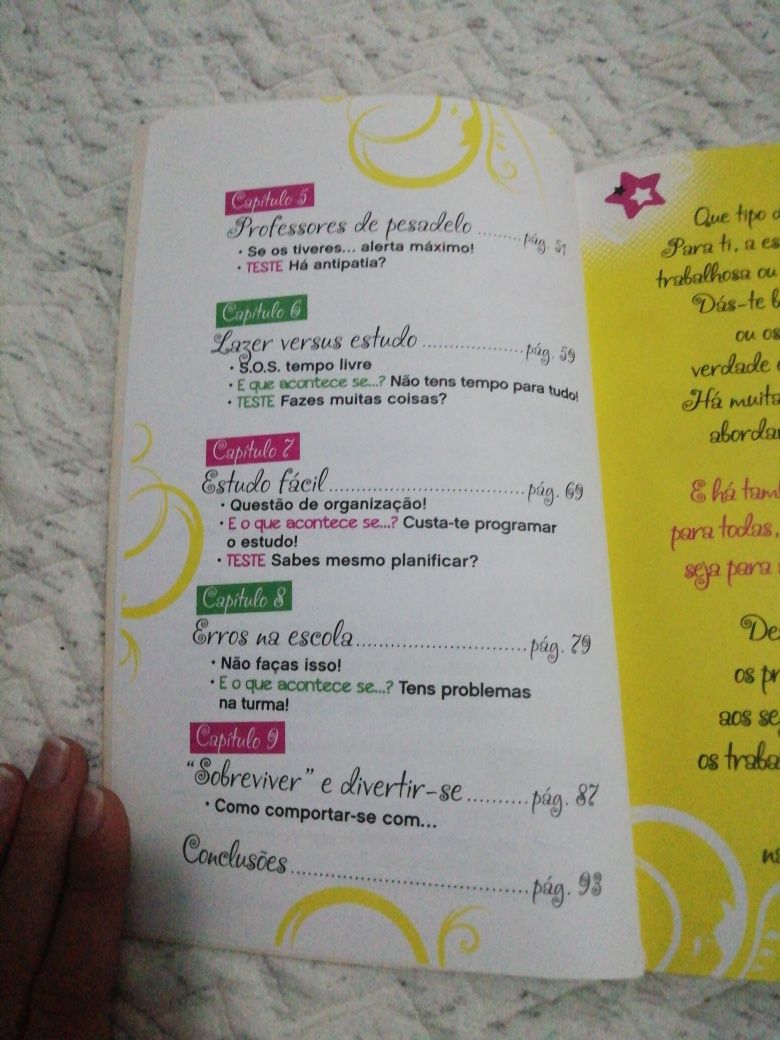 Capítulo 5
Professores de pesadelo ........ pág. 51
• Se os tiveres... alerta máximo!
• TESTE Há antipatia?
Capítulo 6
Lazer versus estudo .................. pág. 59
• S.O.S. tempo livre
• E que acontece se...? Não tens tempo para tudo!
• TESTE Fazes muitas coisas?
Capítulo 7
Estudo fácil .................................. pág. 69
• Questão de organização!
• E o que acontece se...? Custa-te programar
o estudo!
• TESTE Sabes mesmo planificar?
Capítulo 8
Erros na escola ............................. pág. 79
• Não faças isso!
• E o que acontece se...? Tens problemas
na turma!
Capítulo 9
"Sobreviver" e divertir-se .......... pág. 87
• Como comportar-se com...
Conclusões ........................................ pág. 93
Que tipo
Para ti, a
trabalhosa ou
Dás-te
ou os
verdade
Há
abordar
E há
para todas,
seja para
os
aos
os